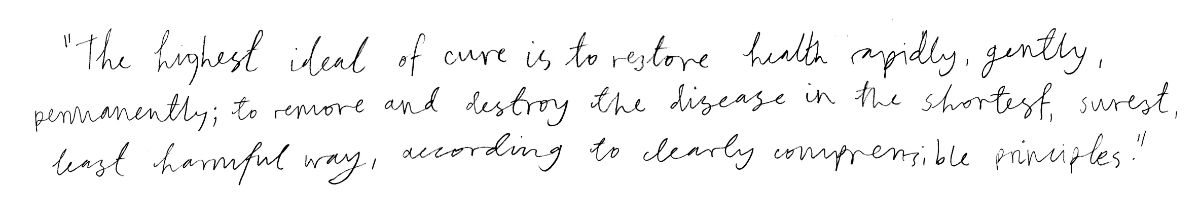 "The highest ideal of cure is to restore health rapidly, gently,
permanently; to remove and destroy the disease in the shortest, surest,
least harmful way, according to clearly comprensible principles."